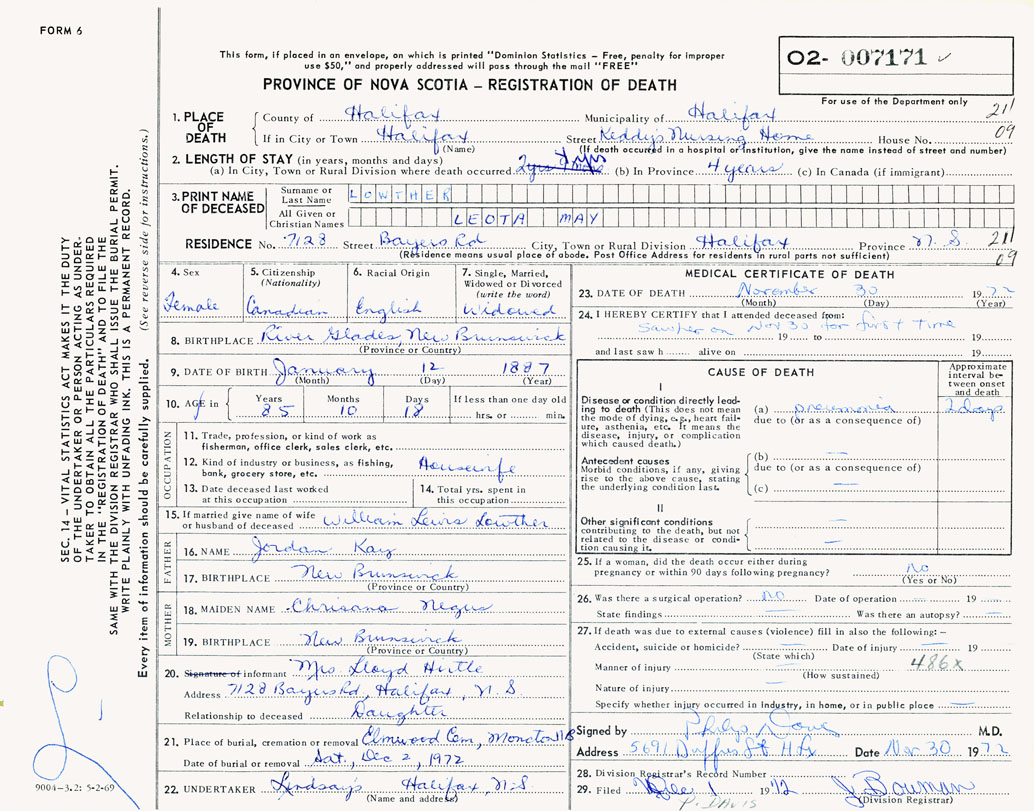 FORM 6
This form, if placed in an envelope, on which is printed "Dominion Statistics – Free, penalty for improper
use $50," and properly addressed will pass through the mail "FREE"
PROVINCE OF NOVA SCOTIA – REGISTRATION OF DEATH
O2- 007171 ✓
For use of the Department only
211
09
1. PLACE OF DEATH
County of Halifax Municipality of Halifax
If in City or Town Halifax Street Keddy's Nursing Home House No.
(Name) (If death occurred in a hospital or institution, give the name instead of street and number)
2. LENGTH OF STAY (in years, months and days)
(a) In City, Town or Rural Division where death occurred 2yrs (b) In Province 4 years (c) In Canada (if immigrant)
3. PRINT NAME OF DECEASED
Surname or Last Name LOWTHER
All Given or Christian Names LEOTA MAY
RESIDENCE No. 7128 Street Bayers Rd City, Town or Rural Division Halifax Province N.S. 211
(Residence means usual place of abode. Post Office Address for residents in rural parts not sufficient) 09
4. Sex Female
5. Citizenship (Nationality) Canadian
6. Racial Origin English
7. Single, Married, Widowed or Divorced (write the word) Widowed
8. BIRTHPLACE River Glades, New Brunswick
(Province or Country)
9. DATE OF BIRTH January 12 1887
(Month) (Day) (Year)
10. AGE in Years 85 Months 10 Days 18 If less than one day old hrs. or min.
OCCUPATION
11. Trade, profession, or kind of work as
fisherman, office clerk, sales clerk, etc.
12. Kind of industry or business, as fishing,
bank, grocery store, etc. Housewife
13. Date deceased last worked
at this occupation
14. Total yrs. spent in
this occupation
15. If married give name of wife
or husband of deceased William Lewis Lowther
FATHER
16. NAME Jordan Kay
17. BIRTHPLACE New Brunswick
(Province or Country)
MOTHER
18. MAIDEN NAME Negus
19. BIRTHPLACE New Brunswick
(Province or Country)
20. Signature of informant Mrs Lloyd Hirtle
Address 7128 Bayers Rd, Halifax, N.S.
Relationship to deceased Daughter
21. Place of burial, cremation or removal Elmwood Cem, Moncton NB
Date of burial or removal Sat., Dec 2, 1972
22. UNDERTAKER Lindsay's Halifax, N.S.
(Name and address)
MEDICAL CERTIFICATE OF DEATH
23. DATE OF DEATH November 30 1972
(Month) (Day) (Year)
24. I HEREBY CERTIFY that I attended deceased from:
Saw her on Nov 30 for first time
19 to 19
and last saw h alive on 19
CAUSE OF DEATH
Approximate interval between onset and death
I
Disease or condition directly leading
to death (This does not mean
the mode of dying, e.g., heart failure,
asthenia, etc. It means the
disease, injury, or complication
which caused death.)
(a) pneumonia 2 days
due to (or as a consequence of)
Antecedent causes
Morbid conditions, if any, giving
rise to the above cause, stating
the underlying condition last.
(b) —
due to (or as a consequence of)
(c) —
II
Other significant conditions
contributing to the death, but not
related to the disease or condition
causing it.
—
—
25. If a woman, did the death occur either during
pregnancy or within 90 days following pregnancy? no
(Yes or No)
26. Was there a surgical operation? no Date of operation — 19 —
State findings — Was there an autopsy? —
27. If death was due to external causes (violence) fill in also the following: –
Accident, suicide or homicide? — Date of injury — 19
(State which)
Manner of injury — 486X
(How sustained)
Nature of injury —
Specify whether injury occurred in Industry, in home, or in public place —
Signed by M.D.
Address 5691 Duffus St Hfx Date Nov 30 1972
28. Division Registrar's Record Number
29. Filed Dec 1 1972 J Bowman
P. DAVIS (Division Registrar)
SEC. 14 – VITAL STATISTICS ACT MAKES IT THE DUTY
OF THE UNDERTAKER OR PERSON ACTING AS UNDERTAKER
TO OBTAIN ALL THE PARTICULARS REQUIRED
IN THE "REGISTRATION OF DEATH" AND TO FILE THE
SAME WITH THE DIVISION REGISTRAR WHO SHALL ISSUE THE BURIAL PERMIT.
WRITE PLAINLY WITH UNFADING INK. THIS IS A PERMANENT RECORD.
Every item of information should be carefully supplied. (See reverse side for instructions.)
9004-3.2: 5-2-69